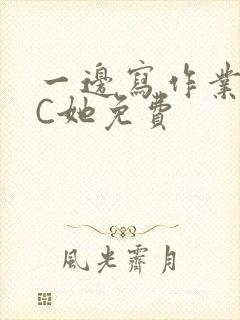 一邊寫作業
C她免費
風光霽月